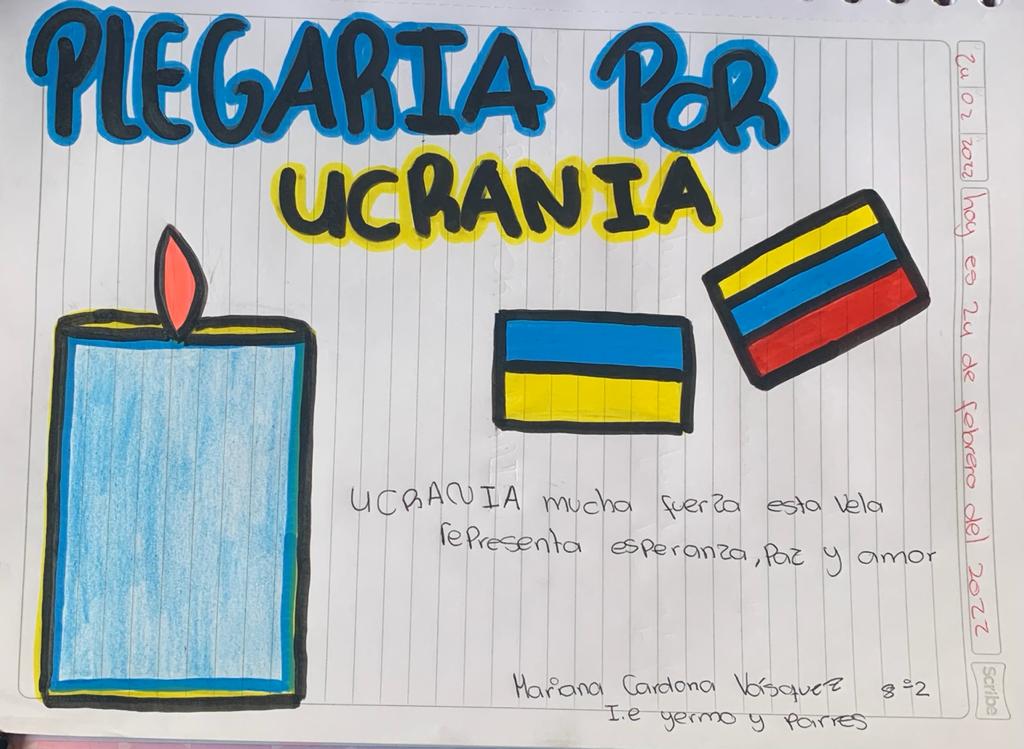 PLEGARIA POR
UCRANIA
UCRANIA mucha fuerza esta vela
representa esperanza, Paz y amor
Mariana Cardona Vásquez 8°2
I.e yermo y parres
24 02 2022 hoy es 24 de febrero del 2022
Scribe